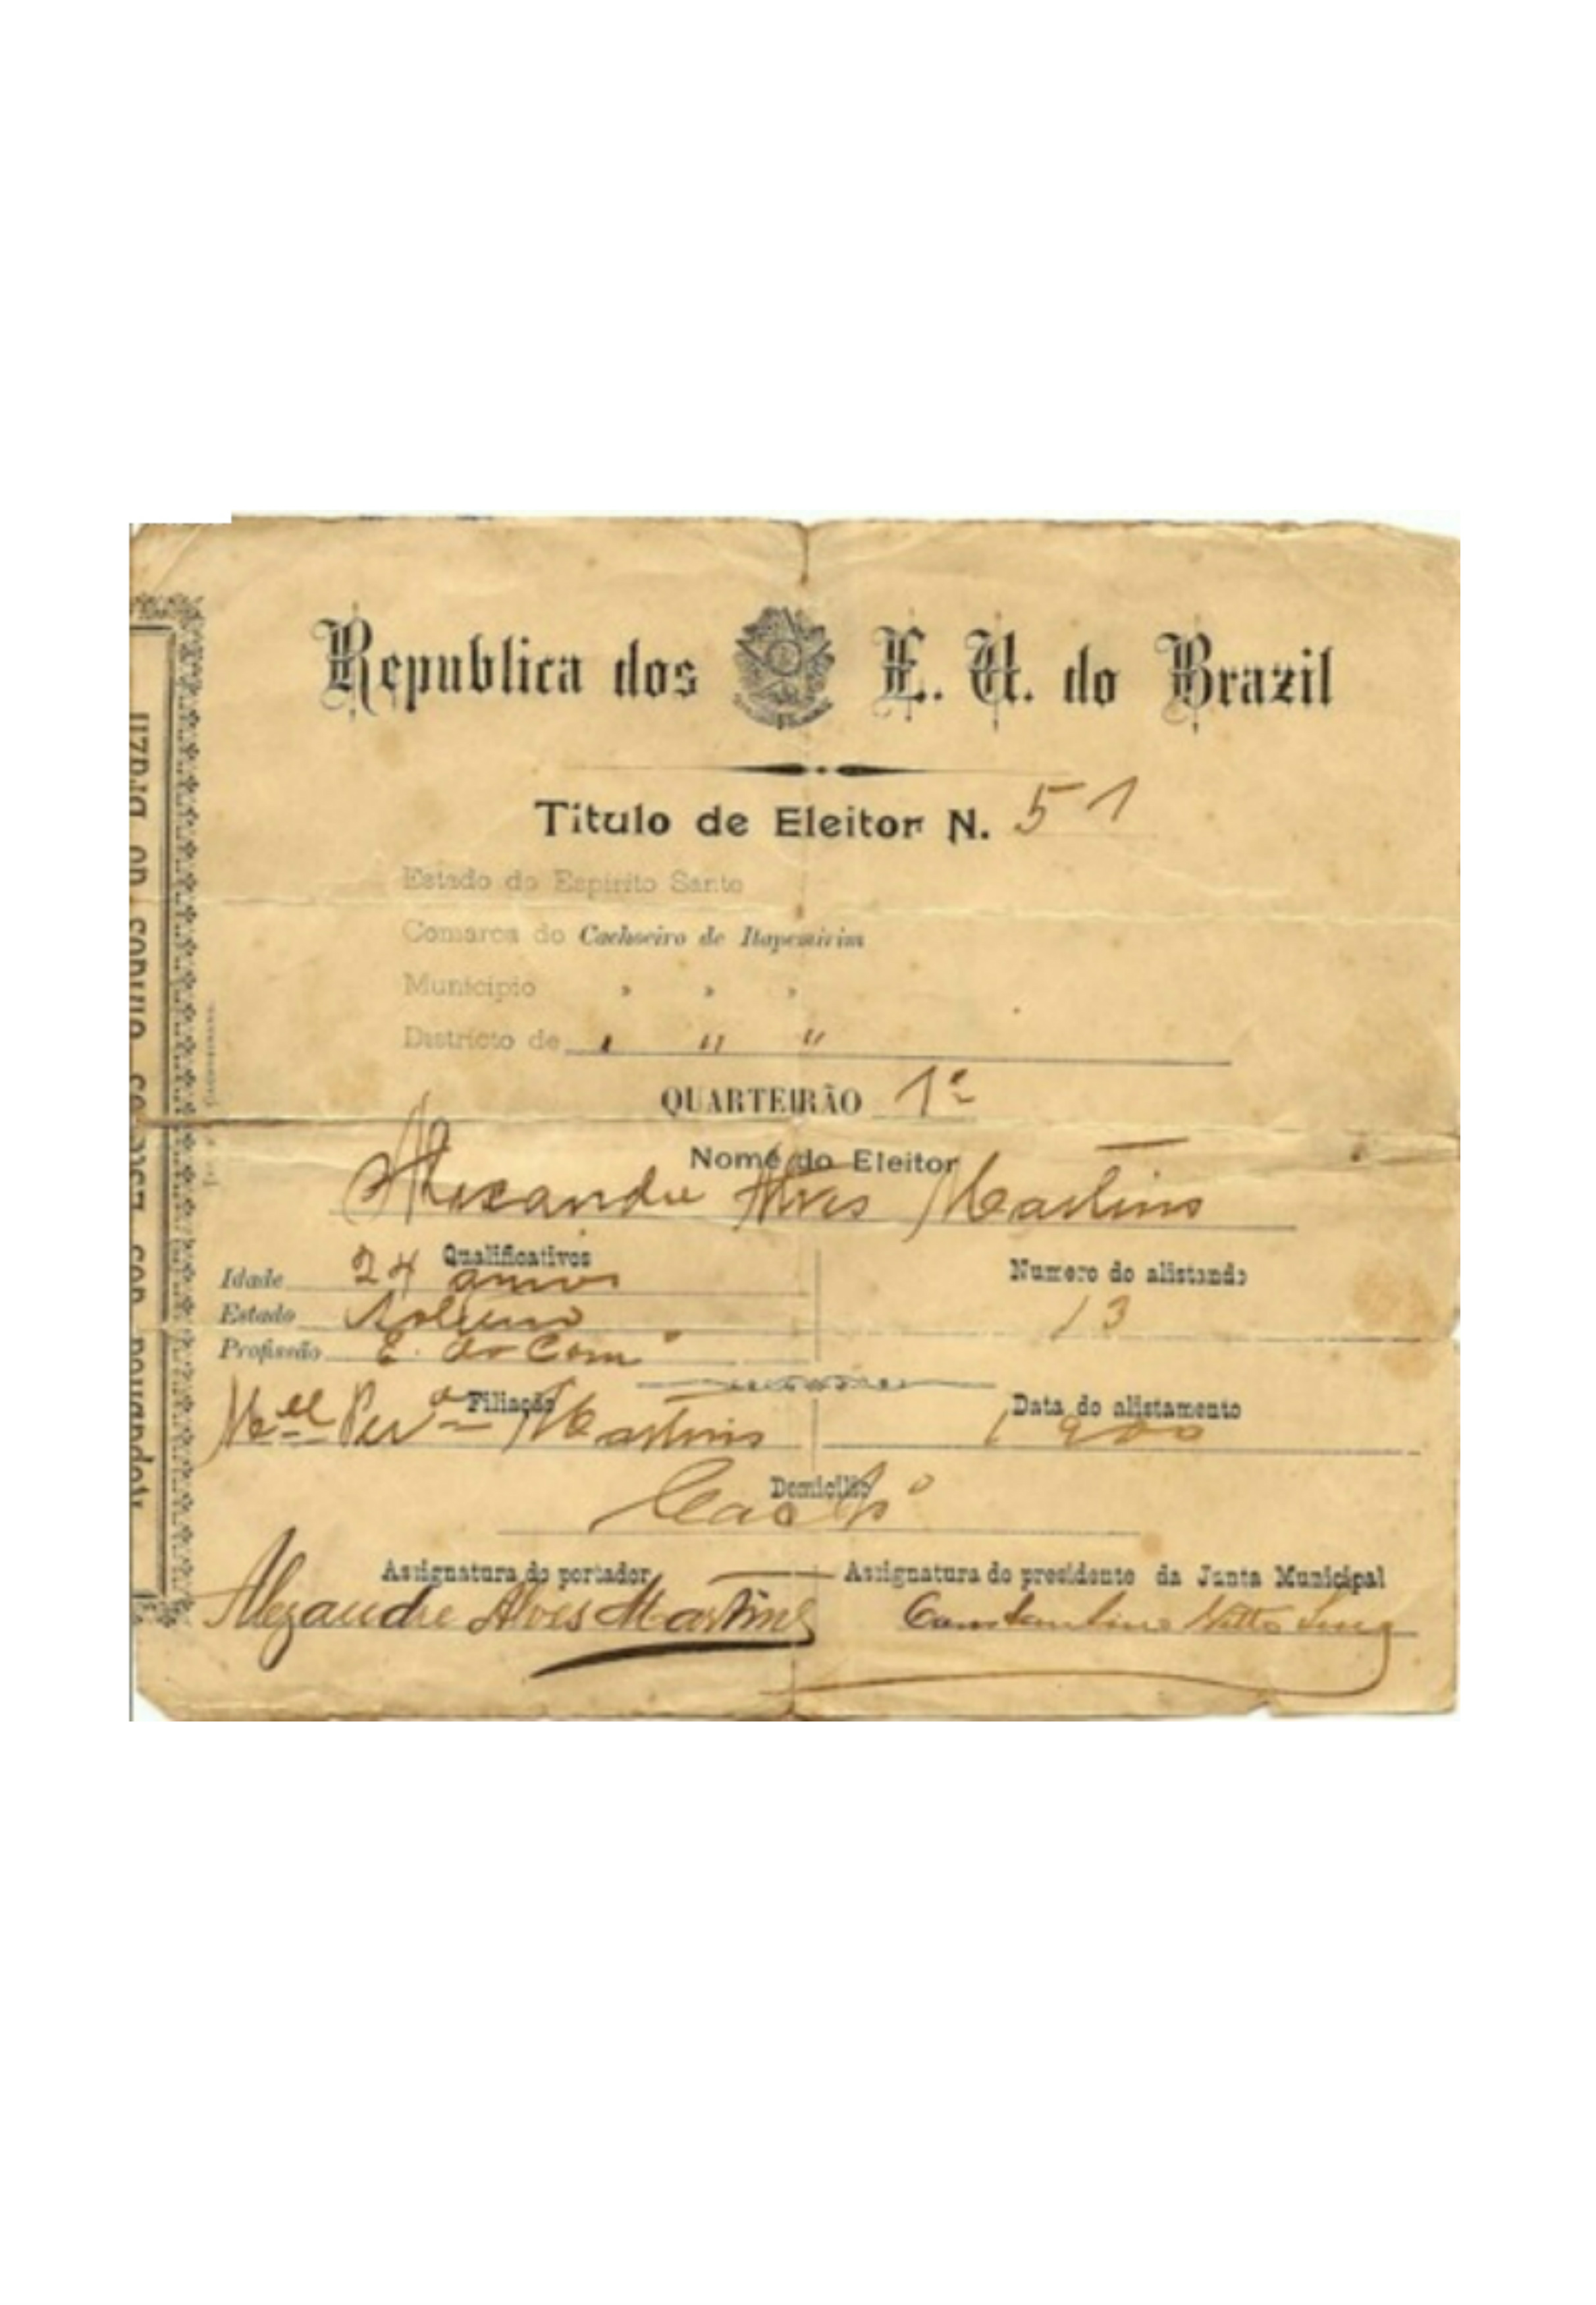 Republica dos E. U. do Brazil
Titulo de Eleitor N. 51
Estado do Espirito Santo
Comarca do Cachoeiro de Itapemirim
Municipio » » »
Districto de " " "
QUARTEIRÃO 1º
Nome do Eleitor
Alexandre Alves Martins
Qualificativos
Idade 24 annos
Estado Solteiro
Profissão E. do Comº
Numero do alistando
13
Filiação
Mell Perª Martins
Data do alistamento
1900
Domicilio
Cachº
Assignatura do portador
Alexandre Alves Martins
Assignatura do presidente da Junta Municipal
Constantino